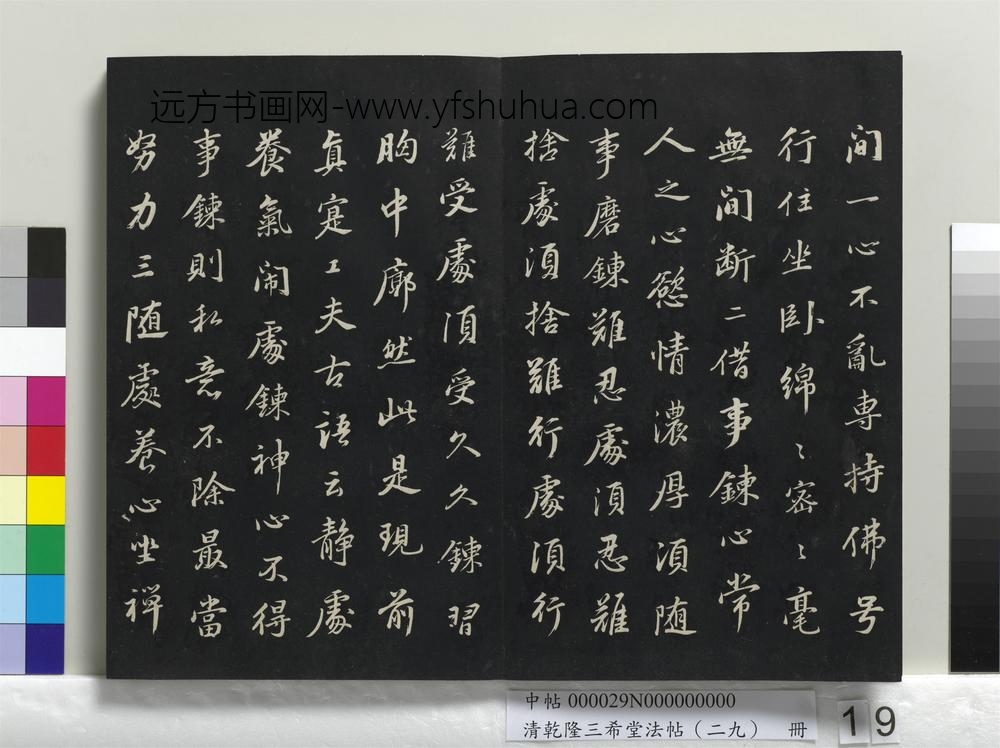 远方书画网-www.yfshuhua.com
间一心不亂専持佛号
行住坐卧綿〻密〻毫
無间断二借事鍊心常
人之心慾情濃厚湏随
事磨鍊難忍處湏忍難
捨處湏捨難行處湏行
難受處湏受久久鍊習
胸中廓然此是現前
真寔工夫古語云静處
養氣闹處鍊神心不得
事鍊則私意不除最當
努力三随處养心坐禅
中帖 000029N000000000
清乾隆三希堂法帖（二九） 冊
19